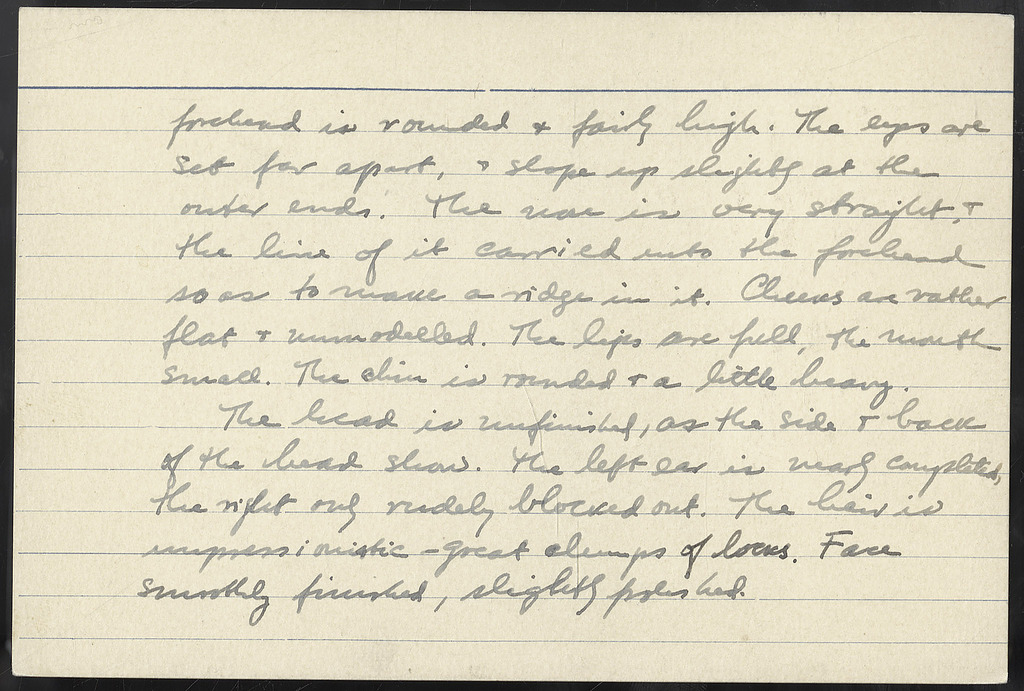 forehead is rounded + fairly high. The eyes are
set far apart, + slope up slightly at the
outer ends. The nose is very straight, +
the line of it carried into the forehead
so as to make a ridge in it. Cheeks are rather
flat + unmodelled. The lips are full, the mouth
small. The chin is rounded + a little heavy.
The head is unfinished, as the side + back
of the head show. The left ear is nearly completed,
the right only rudely blocked out. The hair is
impressionistic - great clumps of locks. Face
smoothly finished, slightly polished.